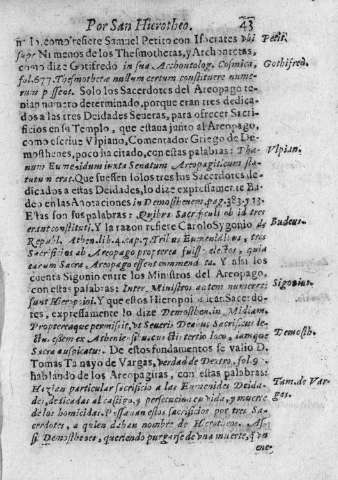 Por San Hierotheo. 43
como refiere Samuel Petito con Isocrates ubi Petit.
supr Ni menos de los Thesmothetas, y Archontetas,
como dize Gotifredo in sua Archontolog. Cosmica, Gothifred.
fol. 677. Thesmotheta nullum certum constituere nume-
rum possent. Solo los Sacerdotes del Areopago te-
nian numero determinado, porque eran tres dedica-
dos a las tres Deidades Seueras, para ofrecer Sacri-
ficios en su Templo, que estaua junto al Areopago,
como escriuc Vlpiano, Comentador Griego de De- Vlpian.
mosthenes, poco ha citado, con estas palabras: Tha-
num Eumenidum iuxta Senatum Areopagiticum sta-
tutum erat. Que fuessen solos tres sus Sacerdotes de-
dicados a estas Deidades, lo dize expressamente Bu-
deo en las Anotaciones in Demosthenem, pag. 383. y 13.
Estas son sus palabras: Quibus Sacrificuli ob id tres Budeus.
erant constituti. Y la razon refiere Carolo Sygonio de
Republ. Athen. lib. 4. cap. 7. Tribus Eumenidibus, tres
Sacrificios ab Areopago propterea fuisse electos, quia
earum Sacra Areopago essent commenda ta. Y assi los
cuenta Sigonio entre los Ministros del Areopago, Sigonius.
con estas palabras: Inter Ministros autem numerati
sunt Hieropoioi. Y que estos Hieropoi
tes, expressamente lo dize Demosthen. in Midiam.
Propterea que permissit, vt Seueris Deabus Sacrificus de- Demosth.
Sacra auspicatus. De estos fundamentos se valio D.
Tomas Tamayo de Vargas, verdad de Dextro, fol. 9
hablando de los Areopagitas, con estas palabras: Tam. de Var-
Hazian particular sacrificio a las Eumenides Deida- gas.
des, dedicadas al castigo, y persecucion, y vida, y muerte
de los homicidas. Passauan estos sacrificios por tres Sa-
cerdotes, a quien deban nombre de Hierotheos. Assi
si Demosthenes, queriendo purgarse de vna muerte, q̃ vn
ene-